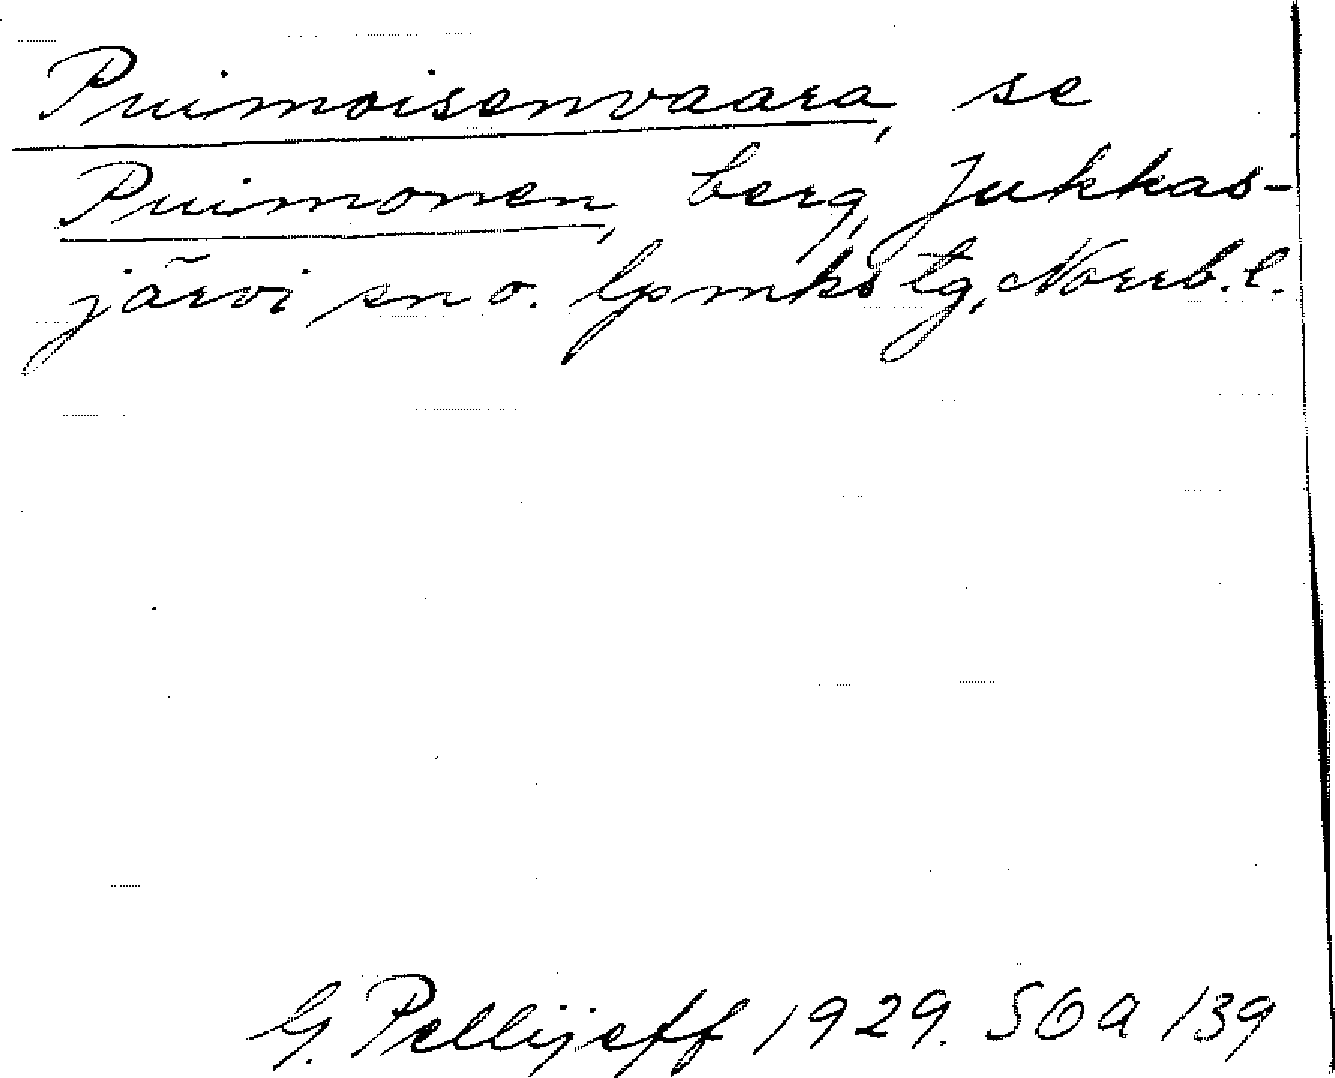 Puimoisenvaara, se
Puimonen, berg, Jukkas-
järvi sn o. lpmks tg, Norrb. l.
G. Pellijeff 1929. SOA 139